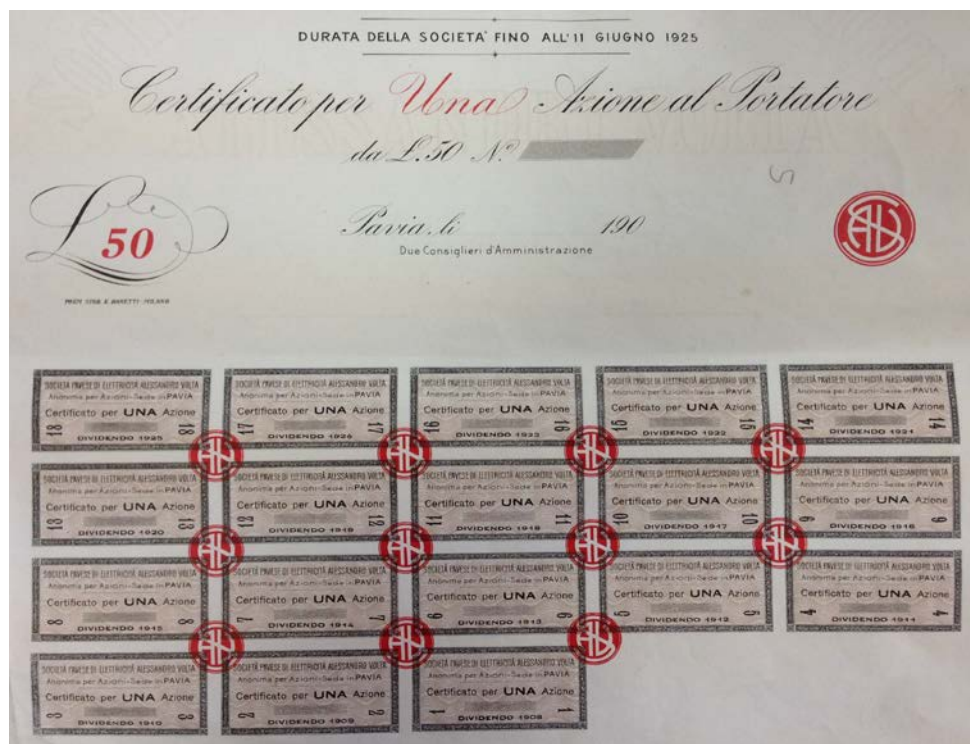 DURATA DELLA SOCIETA' FINO ALL'11 GIUGNO 1925
Certificato per Una Azione al Portatore
da L. 50 Nº
S
Lire
50
Pavia, li 190
Due Consiglieri d'Amministrazione
SAV
SOCIETÀ PAVESE DI ELETTRICITÀ ALESSANDRO VOLTA
Anonima per Azioni-Sede in PAVIA
Certificato per UNA Azione
18 18
DIVIDENDO 1925
SOCIETÀ PAVESE DI ELETTRICITÀ ALESSANDRO VOLTA
Anonima per Azioni-Sede in PAVIA
Certificato per UNA Azione
17 17
DIVIDENDO
SOCIETÀ PAVESE DI ELETTRICITÀ ALESSANDRO VOLTA
Anonima per Azioni-Sede in PAVIA
Certificato per UNA Azione
16 16
DIVIDENDO 1923
SOCIETÀ PAVESE DI ELETTRICITÀ ALESSANDRO VOLTA
Anonima per Azioni-Sede in PAVIA
Certificato per UNA Azione
15 15
DIVIDENDO 1922
SOCIETÀ PAVESE DI ELETTRICITÀ ALESSANDRO VOLTA
Anonima per Azioni-Sede in PAVIA
Certificato per UNA Azione
14 14
DIVIDENDO 1921
SOCIETÀ PAVESE DI ELETTRICITÀ ALESSANDRO VOLTA
Anonima per Azioni-Sede in PAVIA
Certificato per UNA Azione
13 13
DIVIDENDO 1920
SOCIETÀ PAVESE DI ELETTRICITÀ ALESSANDRO VOLTA
Anonima per Azioni-Sede in PAVIA
Certificato per UNA Azione
12 12
DIVIDENDO 1919
SOCIETÀ PAVESE DI ELETTRICITÀ ALESSANDRO VOLTA
Anonima per Azioni-Sede in PAVIA
Certificato per UNA Azione
11 11
DIVIDENDO 1918
SOCIETÀ PAVESE DI ELETTRICITÀ ALESSANDRO VOLTA
Anonima per Azioni-Sede in PAVIA
Certificato per UNA Azione
10 10
DIVIDENDO 1917
SOCIETÀ PAVESE DI ELETTRICITÀ ALESSANDRO VOLTA
Anonima per Azioni-Sede in PAVIA
Certificato per UNA Azione
9 9
DIVIDENDO 1916
SOCIETÀ PAVESE DI ELETTRICITÀ ALESSANDRO VOLTA
Anonima per Azioni-Sede in PAVIA
Certificato per UNA Azione
8 8
DIVIDENDO 1915
SOCIETÀ PAVESE DI ELETTRICITÀ ALESSANDRO VOLTA
Anonima per Azioni-Sede in PAVIA
Certificato per UNA Azione
7 7
DIVIDENDO 1914
SOCIETÀ PAVESE DI ELETTRICITÀ ALESSANDRO VOLTA
Anonima per Azioni-Sede in PAVIA
Certificato per UNA Azione
6 6
DIVIDENDO 1913
SOCIETÀ PAVESE DI ELETTRICITÀ ALESSANDRO VOLTA
Anonima per Azioni-Sede in PAVIA
Certificato per UNA Azione
5 5
DIVIDENDO 1912
SOCIETÀ PAVESE DI ELETTRICITÀ ALESSANDRO VOLTA
Anonima per Azioni-Sede in PAVIA
Certificato per UNA Azione
4 4
DIVIDENDO 1911
SOCIETÀ PAVESE DI ELETTRICITÀ ALESSANDRO VOLTA
Anonima per Azioni-Sede in PAVIA
Certificato per UNA Azione
3 3
DIVIDENDO 1910
SOCIETÀ PAVESE DI ELETTRICITÀ ALESSANDRO VOLTA
Anonima per Azioni-Sede in PAVIA
Certificato per UNA Azione
2 2
DIVIDENDO 1909
SOCIETÀ PAVESE DI ELETTRICITÀ ALESSANDRO VOLTA
Anonima per Azioni-Sede in PAVIA
Certificato per UNA Azione
1 1
DIVIDENDO 1908